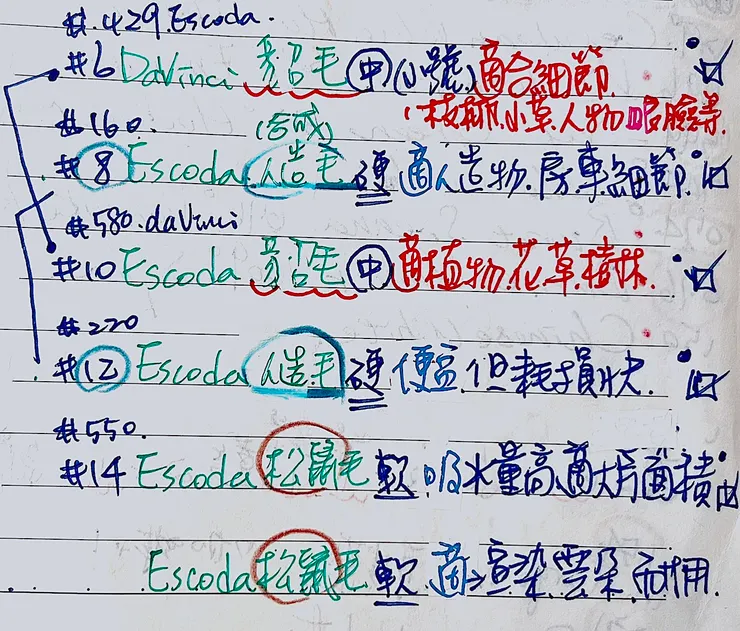 #.429.Escoda.
#6 DaVinci 貂毛 中 (小號) 適合細節.
(枝椏.小草.人物 眼 臉等.
#160. (合成)
#8 Escoda 人造毛 硬 適人造物.房車細節.
#580.daVinci
#10 Escoda 貂毛 中 適植物.花草樹林.
#220
#12 Escoda 人造毛 硬 便宜.但耗損快.
#550.
#14 Escoda 松鼠毛 軟.吸水量高.適大面積
Escoda 松鼠毛 軟 適 渲染.雲朵.耐用.